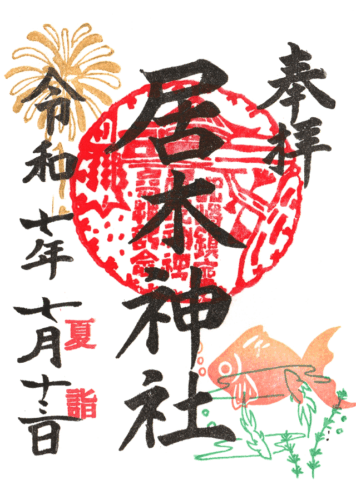 奉拝
居木神社
令和七年七月十三日
夏詣